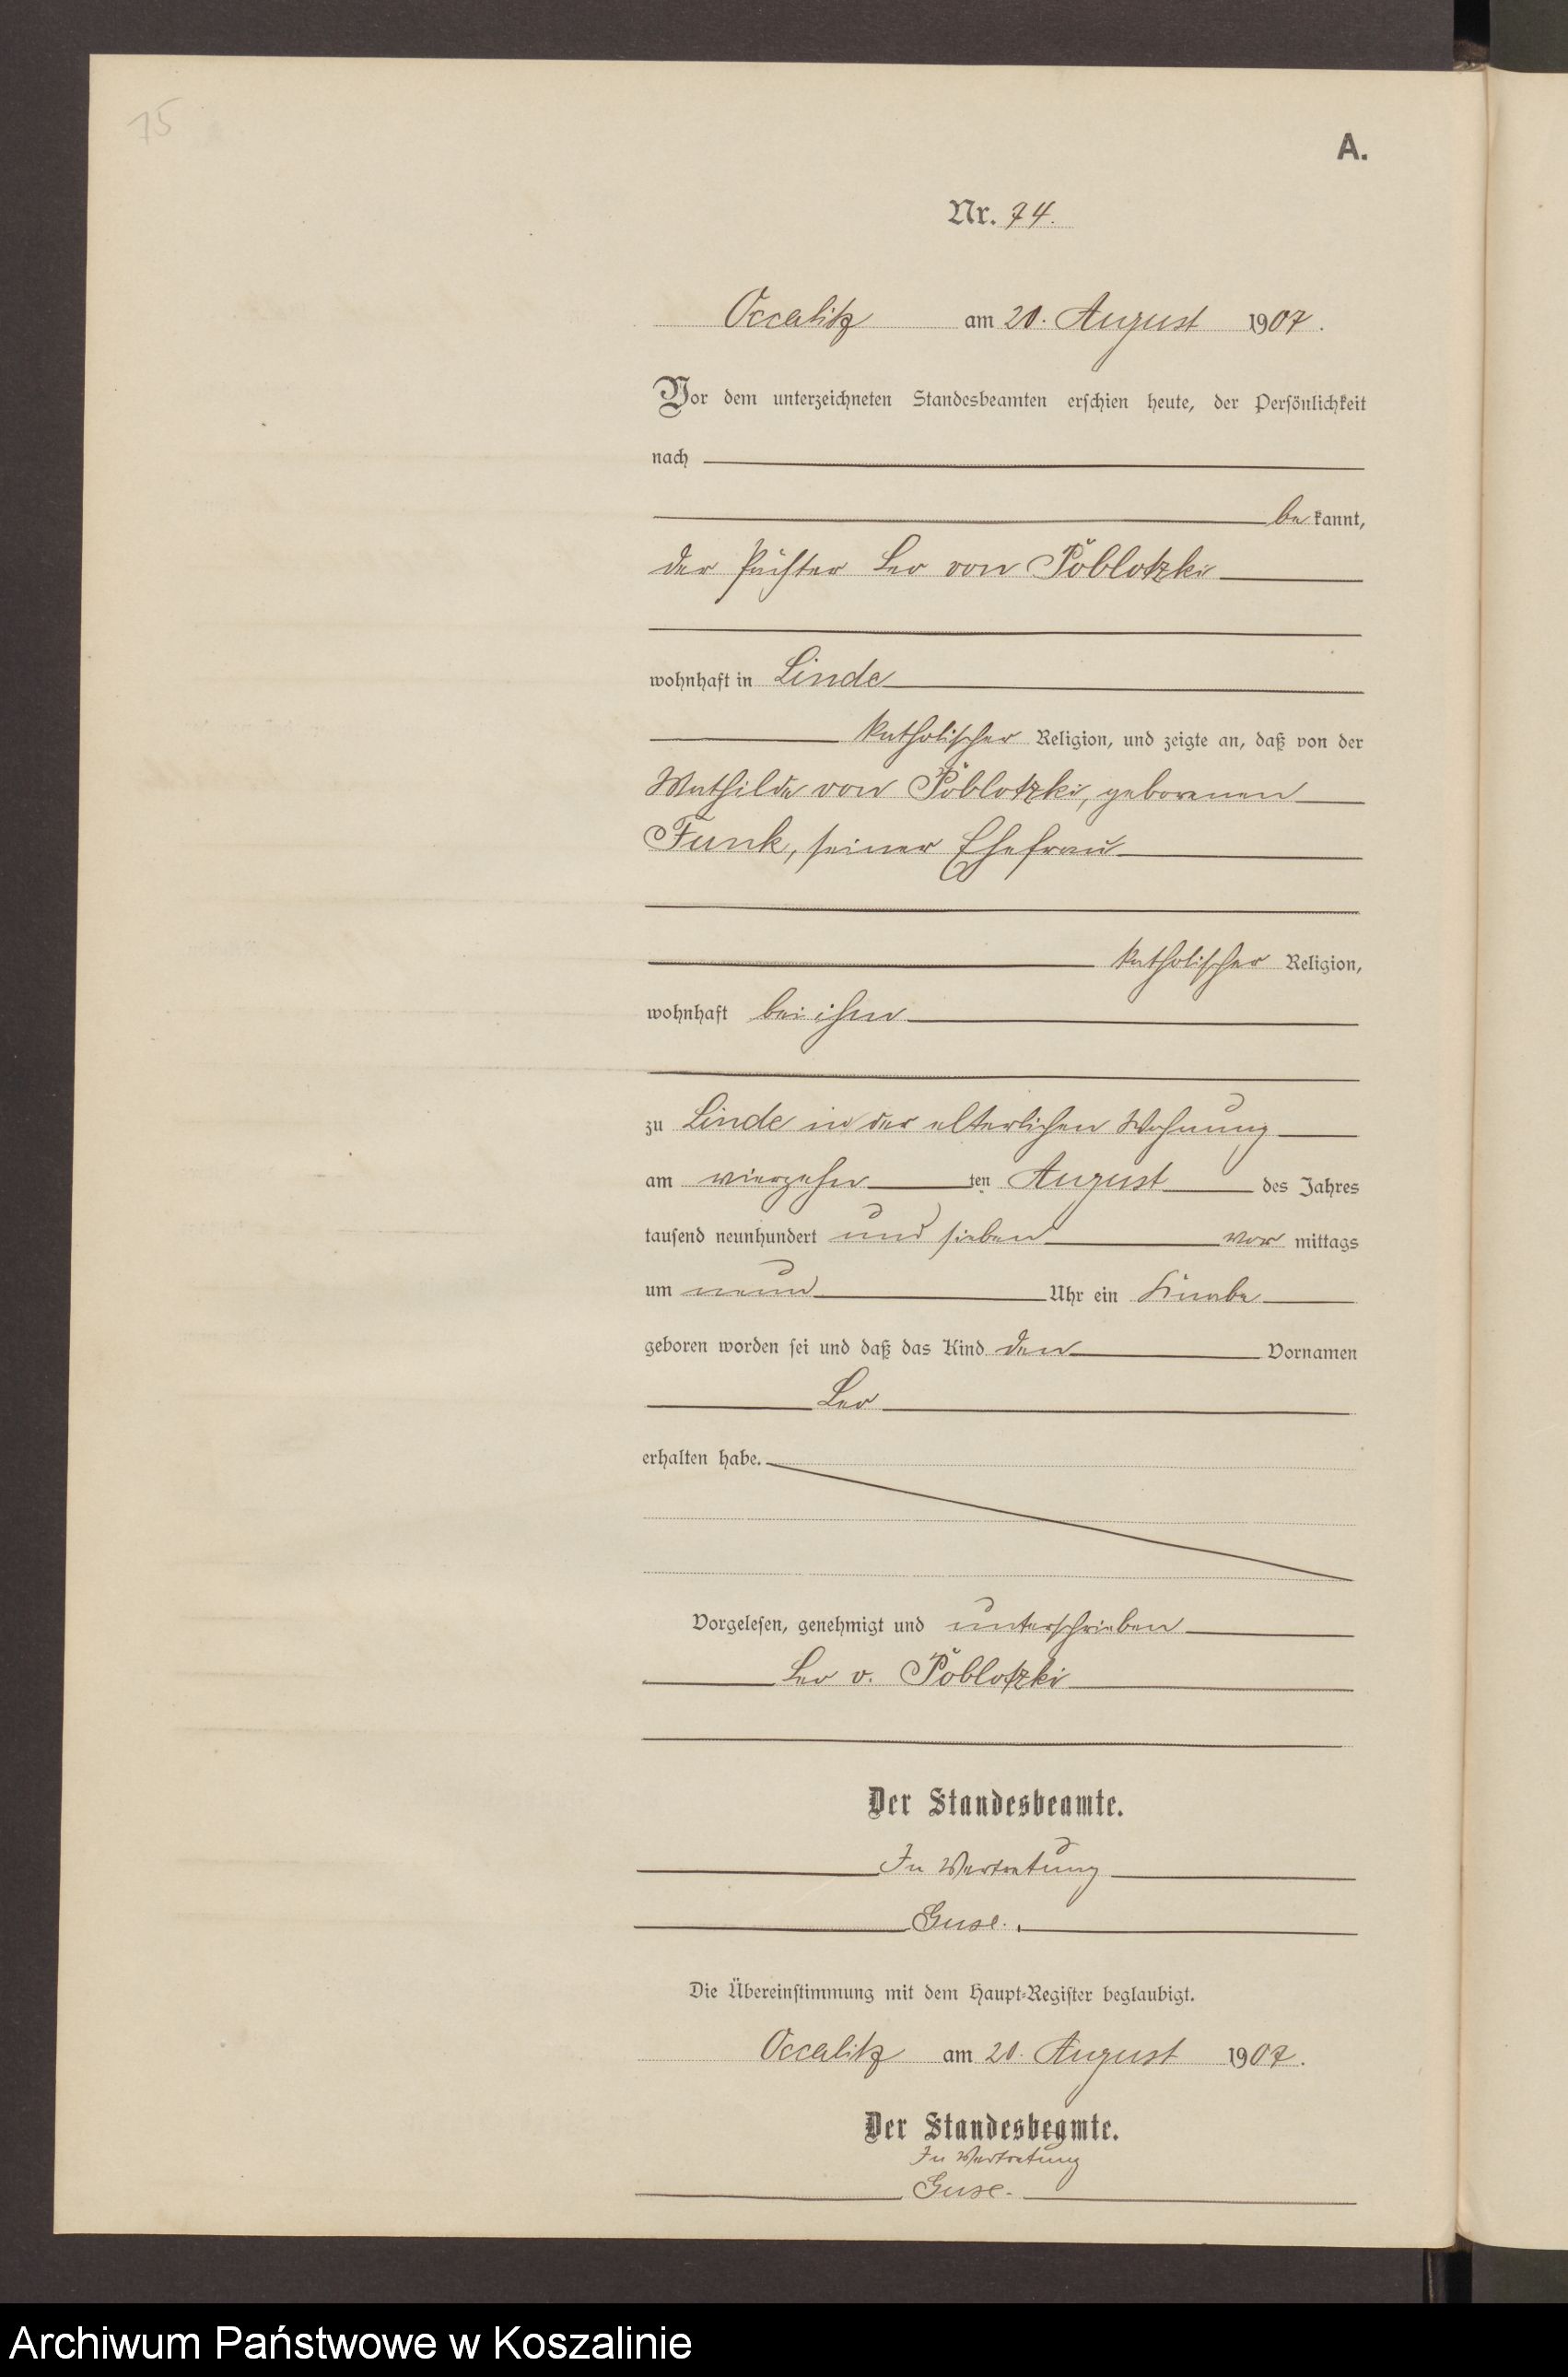 75
A.
Nr. 74.
Occalitz am 20. August 1907.
Vor dem unterzeichneten Standesbeamten erschien heute, der Persönlichkeit
nach
be kannt,
der Pächter Leo von Poblotzki
wohnhaft in Linde
katholischer Religion, und zeigte an, daß von der
Mathilde von Poblotzki, geborenen
Funk, seiner Ehefrau
katholischer Religion,
wohnhaft bei ihm
zu Linde in der elterlichen Wohnung
am vierzehn ten August des Jahres
tausend neunhundert und sieben vor mittags
um neun Uhr ein Knabe
geboren worden sei und daß das Kind den Vornamen
Leo
erhalten habe.
Vorgelesen, genehmigt und unterschrieben
Leo v. Poblotzki
Der Standesbeamte.
In Vertretung
Guse.
Die Übereinstimmung mit dem Haupt-Register beglaubigt.
Occalitz am 20. August 1907.
Der Standesbeamte.
In Vertretung
Guse.
Archiwum Państwowe w Koszalinie